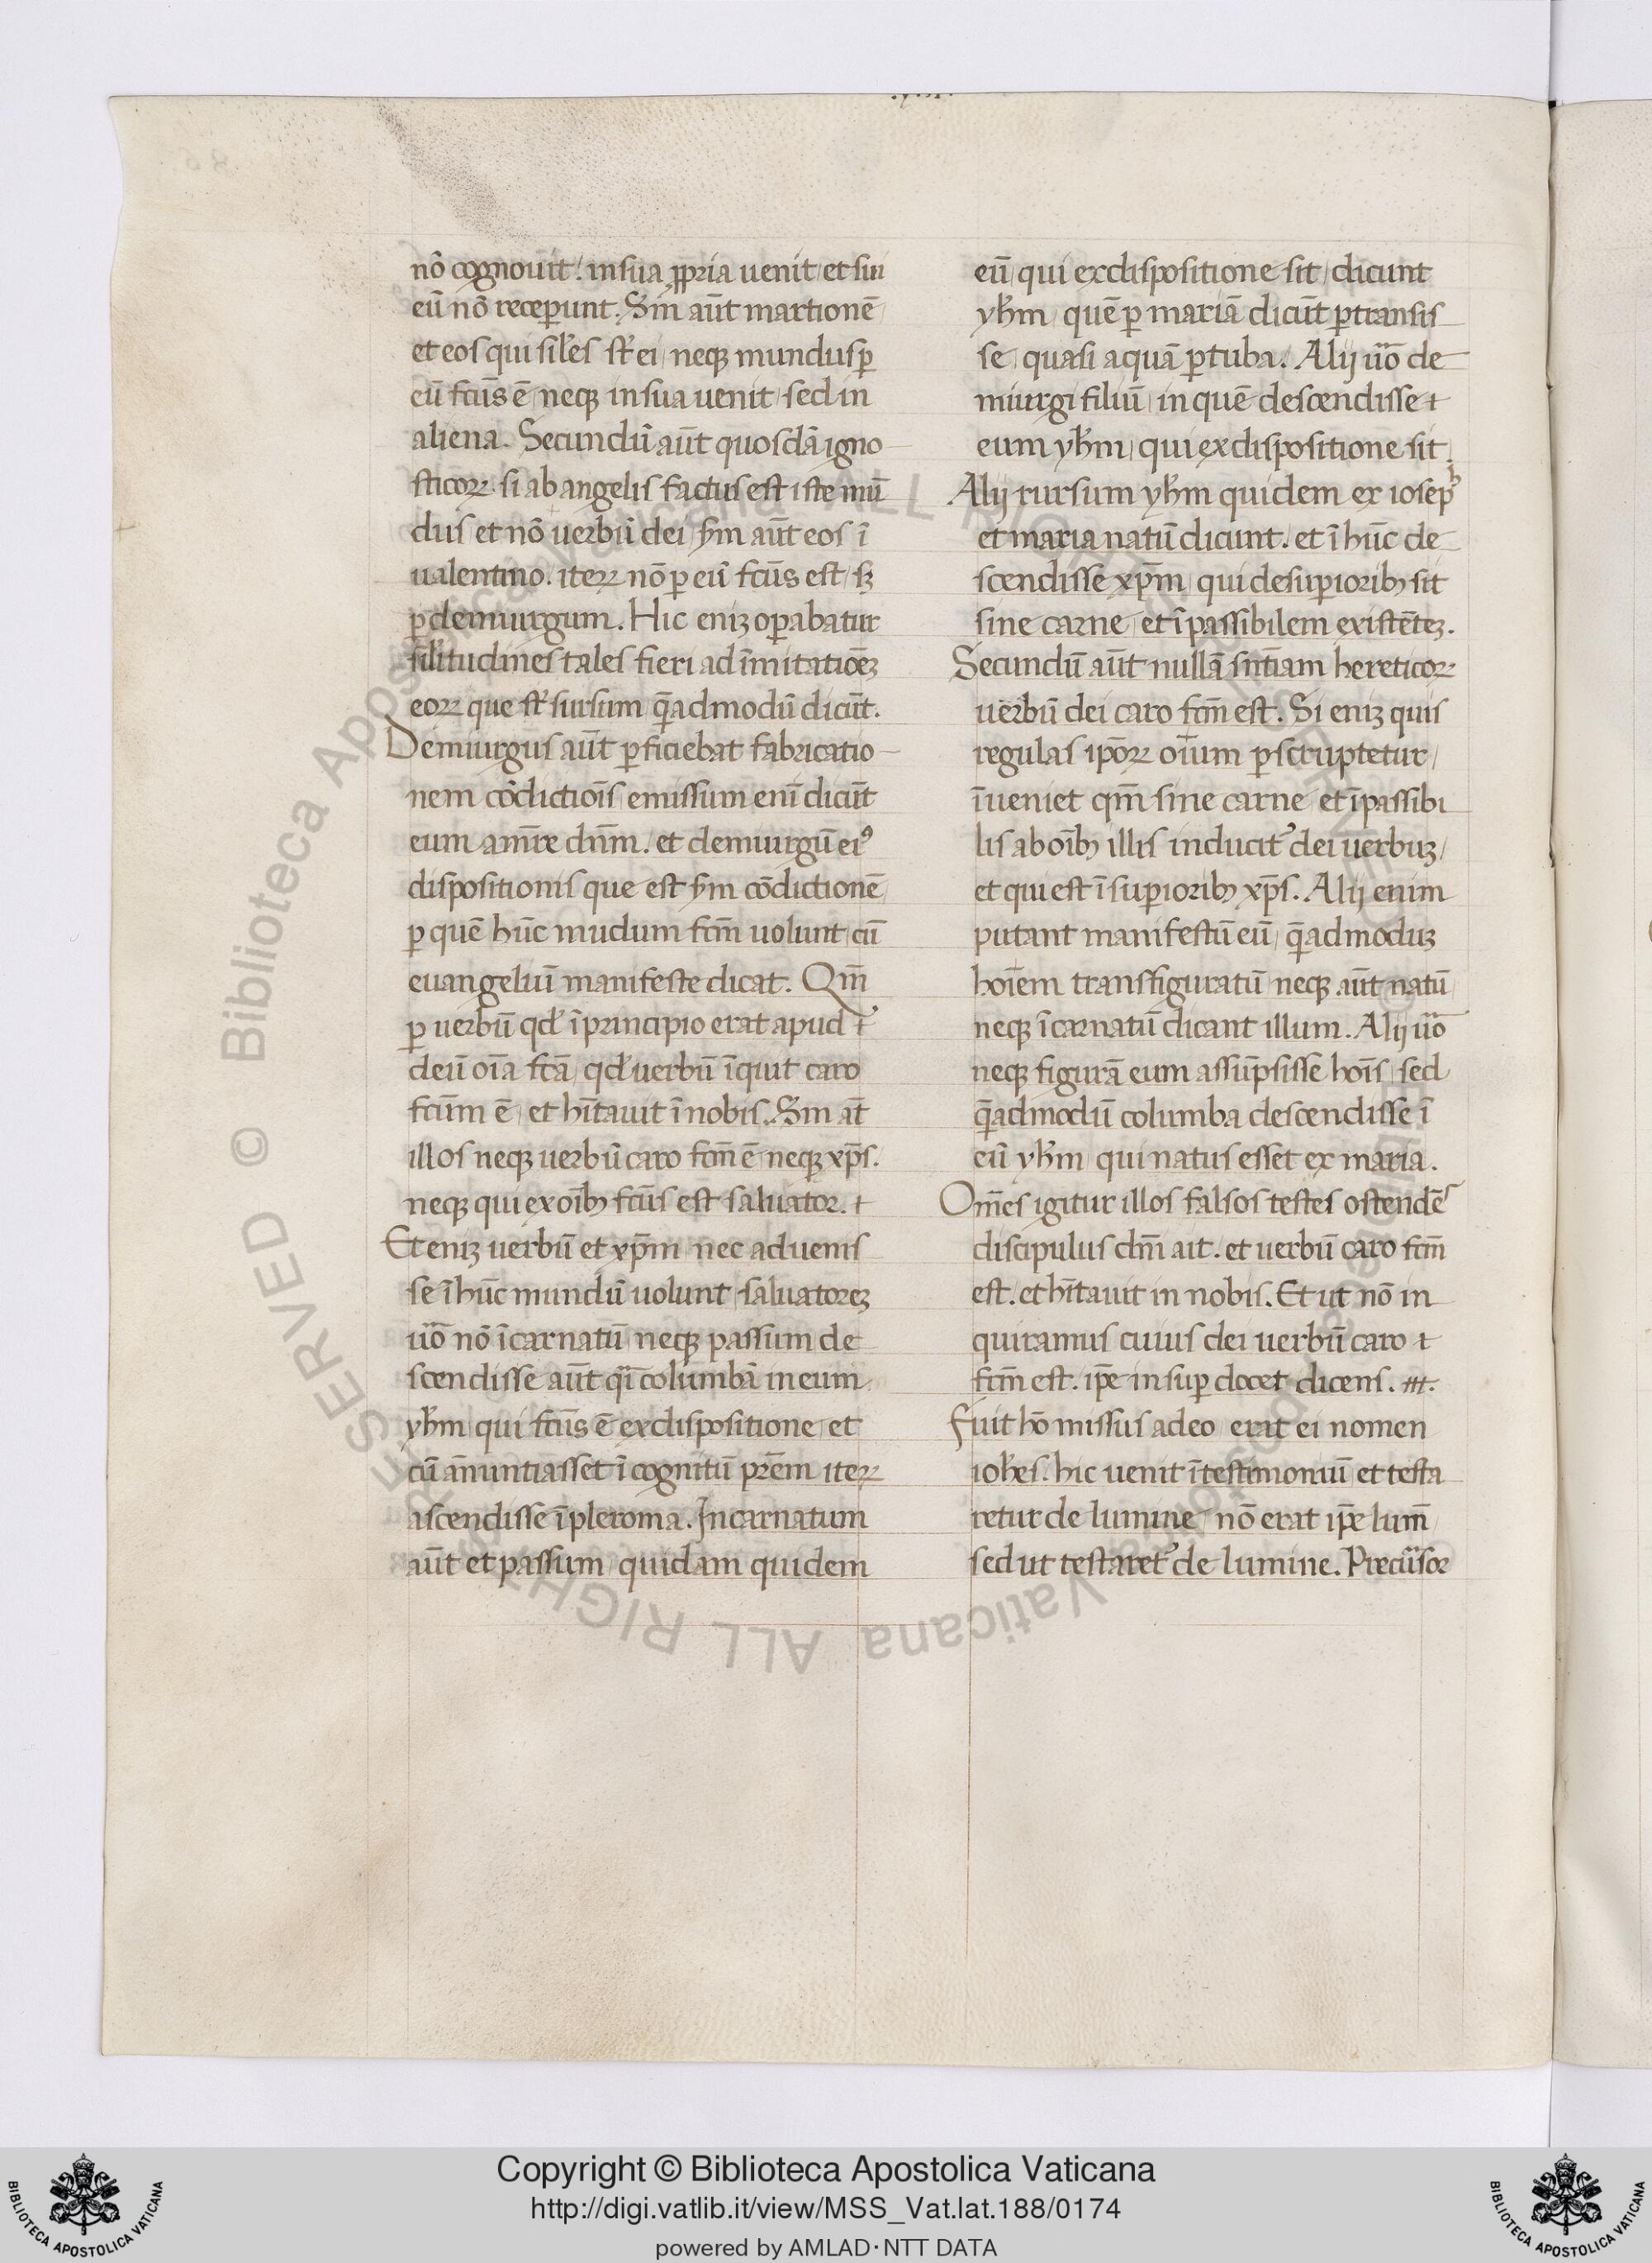 nō cognouit. in sua ꝓpria uenit et sui
eū nō receꝑunt. Sm̄ aūt martionē
et eos qui siłes st̄ ei neqꝫ mundus ꝑ
eū fcūs ē neqꝫ in sua uenit sed in
aliena. Secundū aūt quosdā igno
sticoꝝ si ab angelis factus est iste mū
dus et nō uerbū dei sm̄ aūt eos ī
ualentino. iteꝝ nō ꝑ eū fcūs est sꝫ
ꝑ demiurgum. Hic enīꝫ oꝑabatur
silitudines tales fieri ad īmitatiōeꝫ
eoꝝ que st̄ sursum q̄admodū dicūt.
Demiurgus aūt ꝑficiebat fabricatio
nem cōdictiōis emissum enī dicūt
eum a mr̄e dn̄m. et demiurgū eiꝰ
dispositionis que est sm̄ cōdictionē
ꝑ quē hūc mūdum fcm̄ uolunt cū
euangeliū manifeste dicat. Qm̄
ꝑ uerbū qd̓ ī principio erat apud ⁊
deū oīa fcā qd̓ uerbū īquit caro
fcūm ē et hītauit ī nobis. Sm̄ at̄
illos neqꝫ uerbū caro fcm̄ ē neqꝫ xp̄s.
neqꝫ qui ex oībꝫ fcūs est saluator. ⁊
Et eniꝫ uerbū et xp̄m nec aduenis
se ī hūc mundū uolunt saluatoreꝫ
ūo nō īcarnatū neqꝫ passum de
scendisse aūt q̄i columbā in eum
yħm qui fcūs ē ex dispositione et
cū anūntiasset īcognitū prēm iteꝝ
ascendisse ī pleroma. Incarnatum
aūt et passum quidam quidem
eū qui ex dispositione sit dicunt
yħm quē ꝑ mariā dicūt ꝑtransis
se quasi aquā ꝑ tuba. Alij ūo de
miurgi filiū in quē descendisse ⁊
eum yħm qui ex dispositione sit.
Alij rursum yħm quidem ex iosepħ
et maria natū dicunt. et ī hūc de
scendisse xp̄m qui de suꝑioribꝫ sit
sine carne et īpassibilem existēteꝫ.
Secundū aūt nullā sn̄tiam hereticoꝝ
uerbū dei caro fcm̄ est. Si eniꝫ quis
regulas ipōꝝ oīum ꝑscruptetur
īueniet qm̄ sine carne et īpassibi
lis ab oībꝫ illis inducit᷑ dei uerbuꝫ
et qui est ī suꝑioribꝫ xp̄s. Alij enim
putant manifestū eū q̄admoduꝫ
hoīem transfiguratū neqꝫ aūt natū
neqꝫ īcarnatū dicant illum. Alij ūo
neqꝫ figurā eum assūpsisse hoīs sed
q̄admodū columba descendisse ī
eū yħm qui natus esset ex maria.
Om̄es igitur illos falsos testes ostendēs
discipulus dn̄i ait. et uerbū caro fcm̄
est. et hītauit in nobis. Et ut nō in
quiramus cuius dei uerbū caro ⁊
fcm̄ est. ip̄e insuꝑ docet dicens.
Fuit hō missus a deo erat ei nomen
ioħes. hic uenit ī testimoniū et testa
retur de lumine nō erat ip̄e lum̄
sed ut testaret᷑ de lumine. Precūsor
© Biblioteca Apostolica Vaticana ALL RIGHTS RESERVED
Copyright © Biblioteca Apostolica Vaticana
http://digi.vatlib.it/view/MSS_Vat.lat.188/0174
powered by AMLAD·NTT DATA
BIBLIOTECA APOSTOLICA VATICANA
BIBLIOTECA APOSTOLICA VATICANA